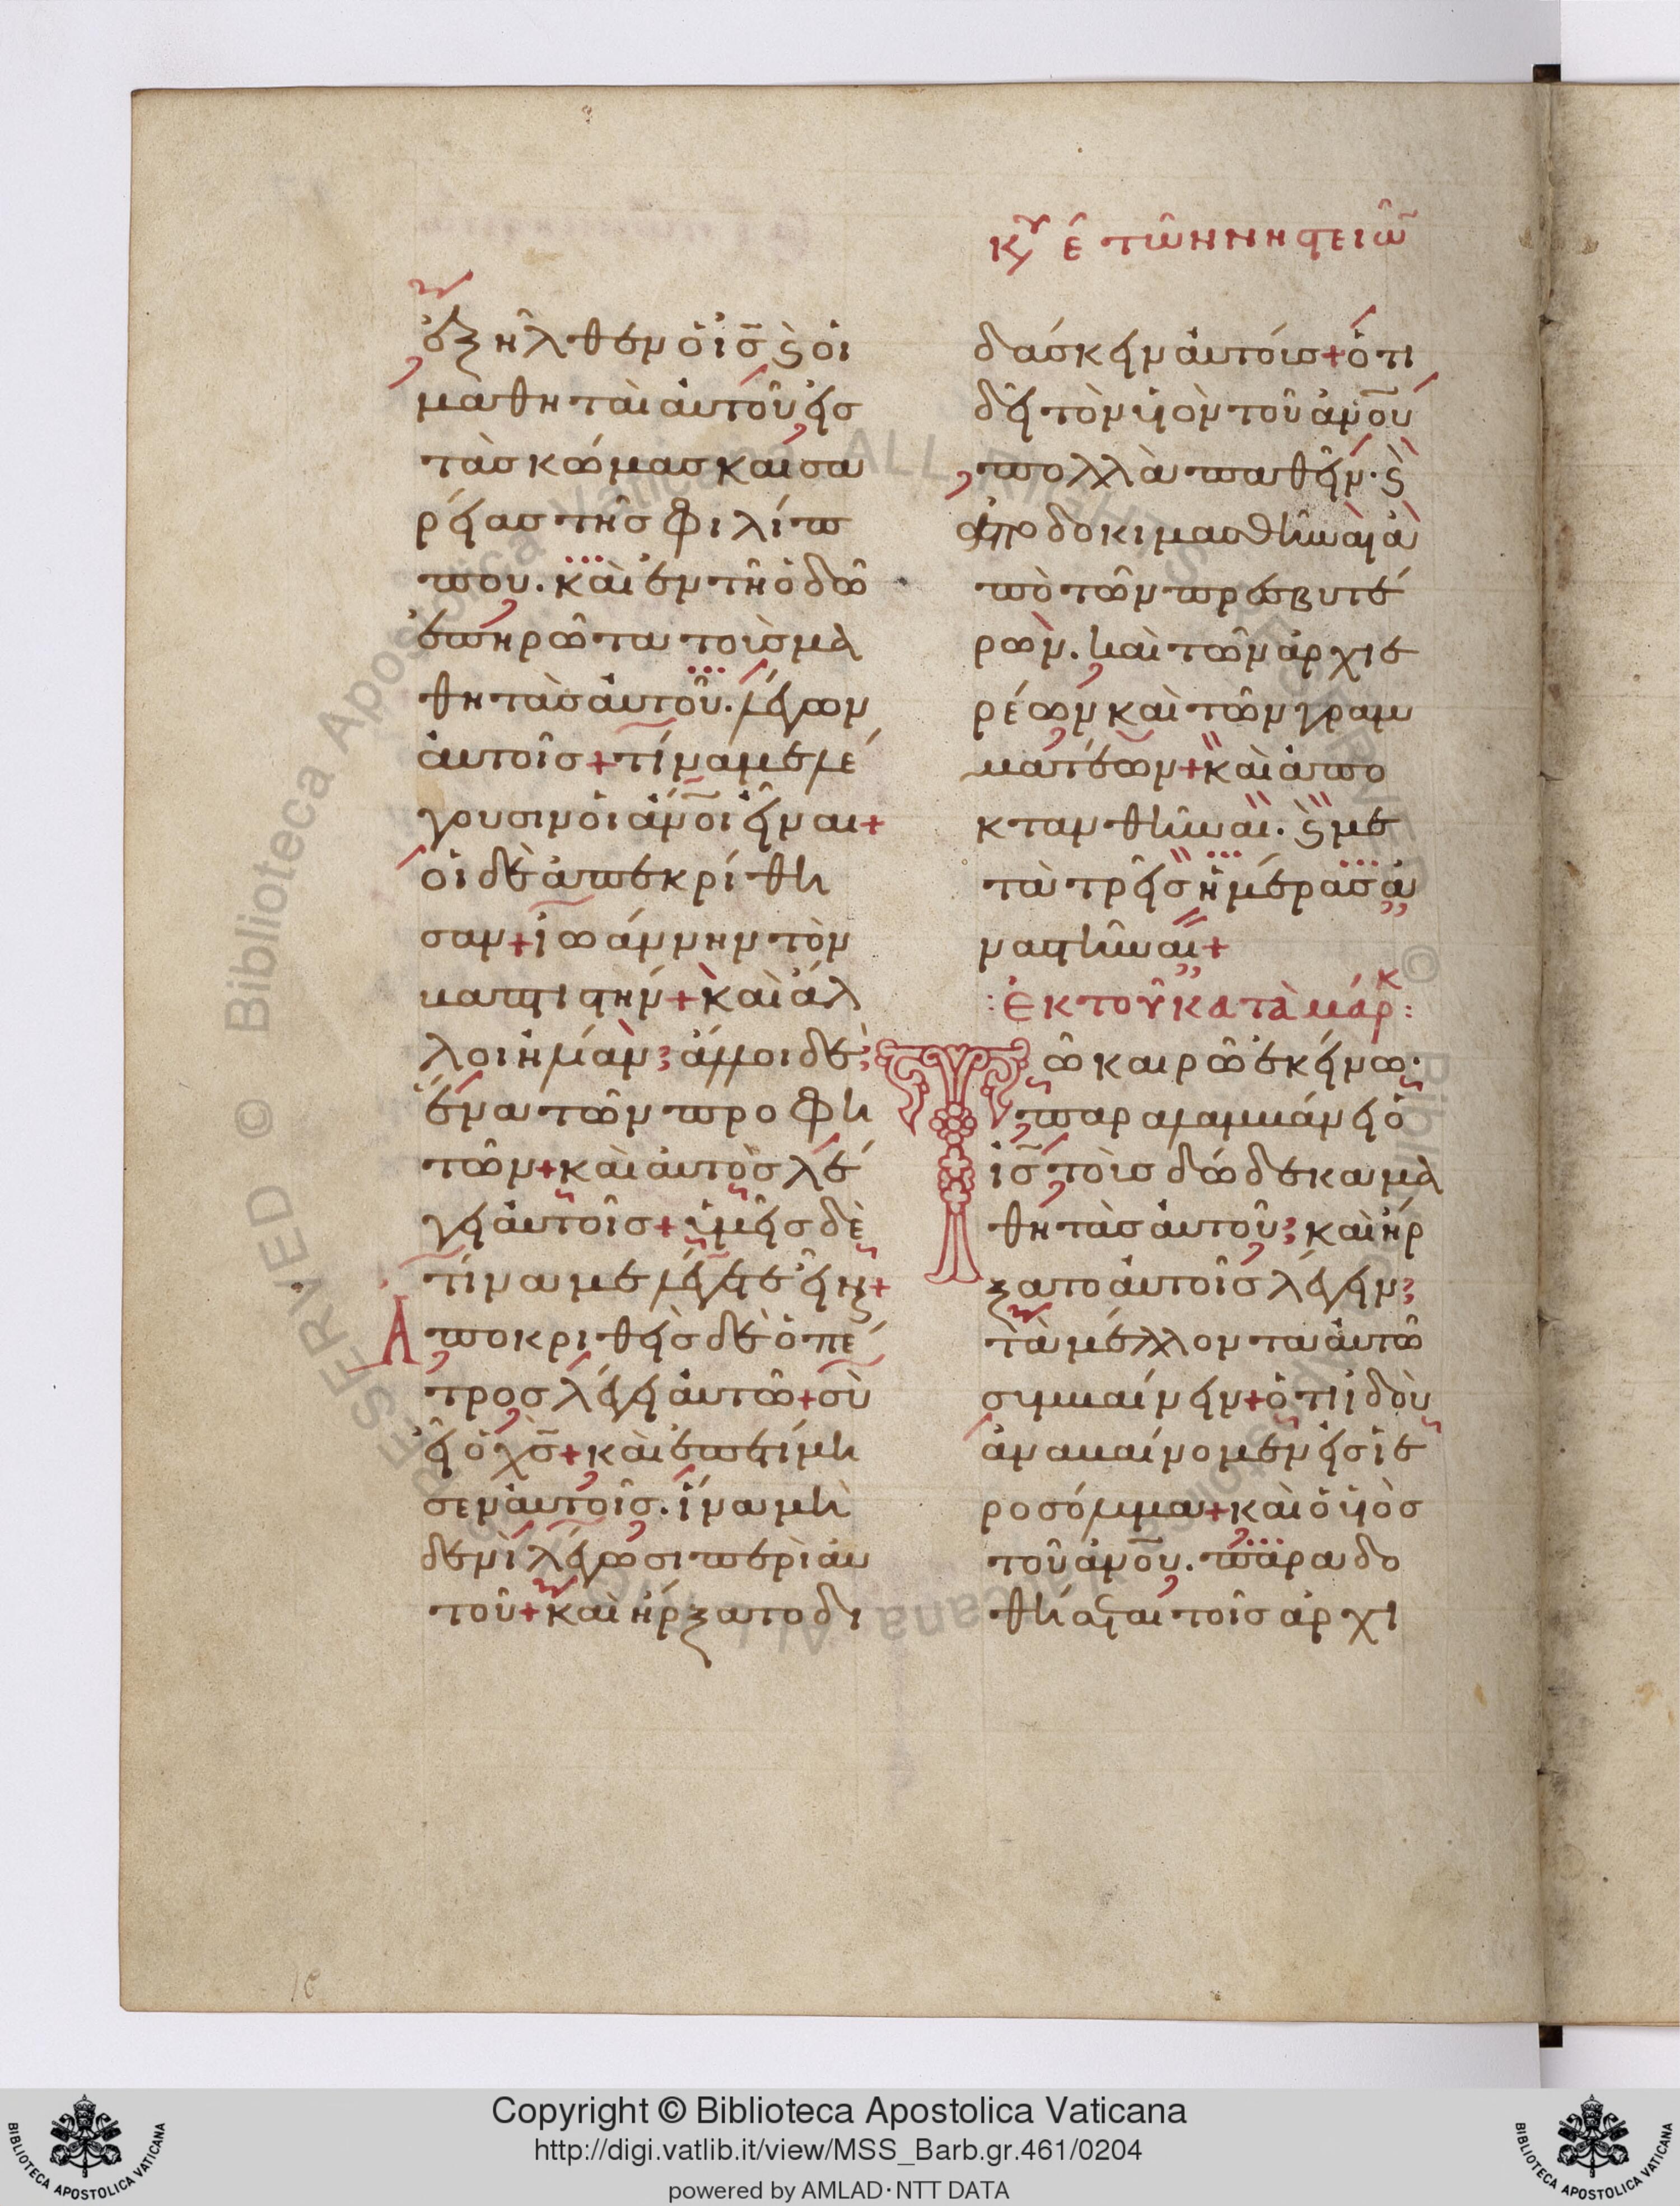 κυ ε τῶν νηστειῶ
ἐξῆλθεν ὁ ις ϛ οἱ
μαθηταὶ αὐτοῦ εἰσ
τὰσ κώμασ καισα
ρείασ τῆσ φιλίπ
που. καὶ ἐν τῆ ὁδῶ
ἐπηρώτα τοὺσ μα
θητὰσ αὐτοῦ. λέγων
αὐτοῖσ + τίνα με λέ
γουσιν οἱ ανοι εἶναι +
οἱ δὲ ἀπεκρίθη
σαν + ἰωάννην τὸν
βαπτιστήν + καὶ ἄλ
λοι ἡλίαν; ἄλλοι δὲ;
ἕνα τῶν προφη
τῶν + καὶ αὐτὸσ λέ
γει αὐτοῖσ + ὑμεῖσ δὲ
τίνα με λέγετε εἶναι +
Αποκριθεὶσ δὲ ὁ πέ
τροσ λέγει αὐτῶ + σὺ
εἶ ὁ χς + καὶ ἐπετίμη
σεν αὐτοῖσ. ἵνα μη
δενὶ λέγωσι περὶ αὐ
τοῦ + καὶ ἤρξατο δι
δάσκειν αὐτούσ + ὅτι
δεῖ τὸν υἱὸν τοῦ ανου
πολλὰ παθεῖν. ϛ
ἀποδοκιμασθῆναι ἀ
πὸ τῶν πρεσβυτέ
ρων. καὶ τῶν ἀρχιε
ρέων καὶ τῶν γραμ
ματέων + καὶ ἀπο
κτανθῆναι. ϛ με
τὰ τρεῖσ ἡμέρασ ἀ
ναστῆναι +
: ἐκ τοῦ κατὰ μάρκ :
Τῶ καιρῶ ἐκείνω·
παραλαμβάνει ὁ
ις τοὺσ δώδεκα μα
θητὰσ αὐτοῦ; καὶ ἤρ
ξατο αὐτοῖσ λέγειν;
τὰ μέλλοντα αὐτῶ
συμβαίνειν + ὅτι ἰδοὺ
ἀναβαίνομεν εἰσ ἱε
ροσόλυμα + καὶ ὁ υἱὸσ
τοῦ ανου. παραδο
θήσεται τοῖσ ἀρχι
Copyright © Biblioteca Apostolica Vaticana
http://digi.vatlib.it/view/MSS_Barb.gr.461/0204
powered by AMLAD·NTT DATA